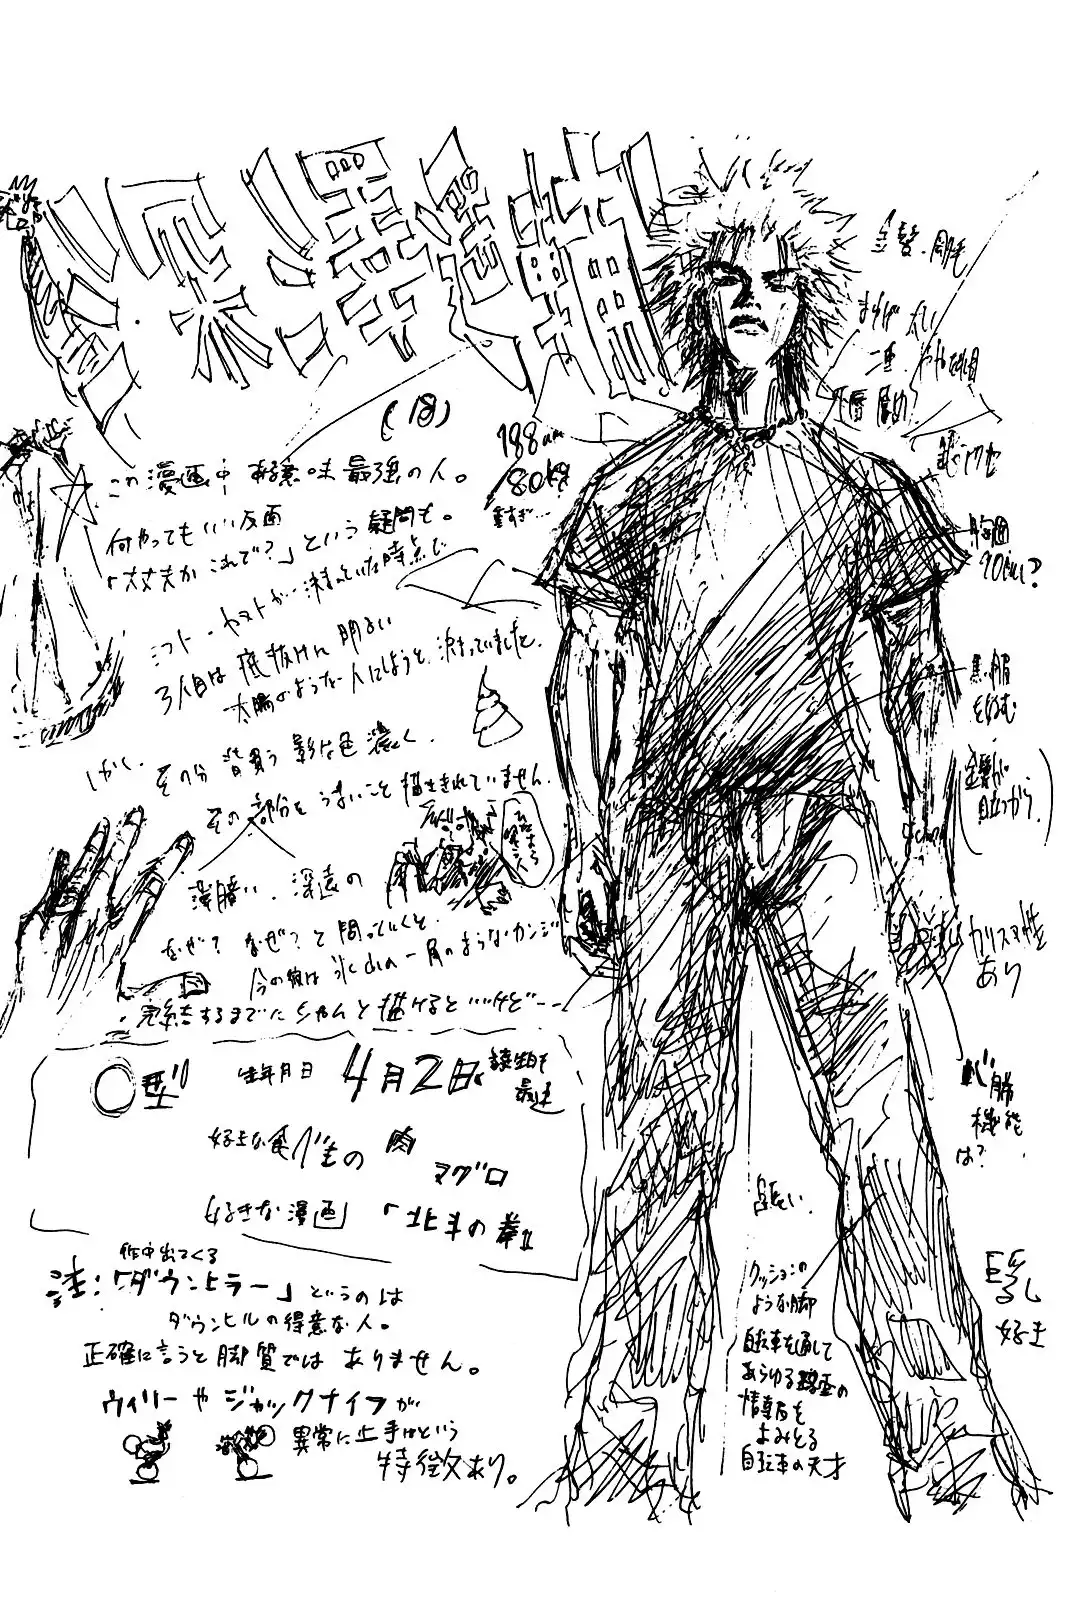 深澤遥輔
(18)
188cm
80kg
重すぎ…
この漫画中 ある意味最強の人。
何やってもいい反面
「大丈夫か これで?」という疑問も。
シフト・ヤマトが決まっていた時点で
3人目は底抜けに明るい
太陽のような人にしようと決まっていました。
しかし、
その分 背負う影は色濃く、
その部分をうまいこと描ききれていません。
薄暗い、深遠の
なぜ? なぜ?と問っていくと
今の彼は氷山の一角のようなカンジ
完結するまでにちゃんと描けるといいけど…
O型
生年月日 4月2日
誕生日も
最速
好きな食べもの 肉
マグロ
好きな漫画 「北斗の拳」
作中出てくる
注:「ダウンヒラー」というのは
ダウンヒルの得意な人。
正確に言うと脚質ではありません。
ウィリーやジャックナイフが
異常に上手いという
特徴あり。
金髪・剛毛
まゆげ 太い
二重
下唇 厚め
胸囲
90cm?
黒い服
を好む
(金髪が
目立つから。)
カリスマ性
あり
機能
は?
長い
クッションの
ような脚
自転車を通して
あらゆる路面の
情報を
よみとる
自転車の天才
巨乳
好き